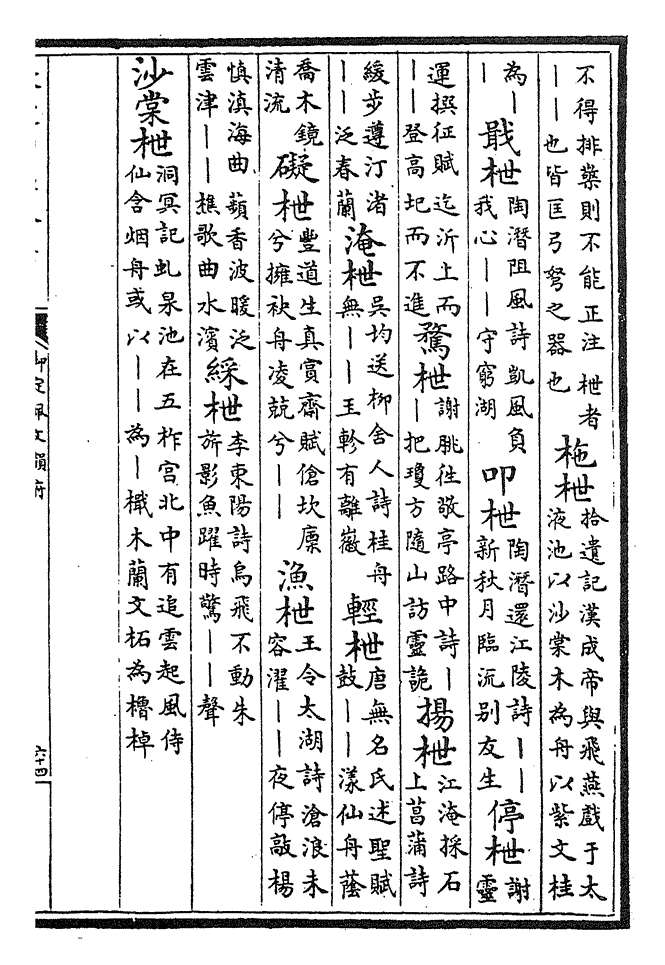 不得排檠則不能正注枻者
——也皆匡弓弩之器也
柂枻
拾遺記漢成帝與飛燕戲于太
液池以沙棠木為舟以紫文桂
為—
—
戢枻
陶潛阻風詩凱風負
我心——守窮湖
叩枻
陶潛還江陵詩——
新秋月臨流别友生
停枻
謝
靈
運撰征賦迄沂上而
——登高圯而不進
騖枻
謝脁徃敬亭路中詩—
—把瓊方隨山訪靈詭
揚枻
江淹採石
上菖蒲詩
緩步遵汀渚
——泛春蘭
淹枻
吳均送柳舍人詩桂舟
無——王軫有離徽
輕枻
唐無名氏述聖賦
鼓——漾仙舟蔭
喬木鏡
清流
礙枻
豐道生真賞齋賦傖坎廩
兮擁袂舟凌兢兮——
漁枻
王令太湖詩滄浪未
容濯——夜停敲楊
慎滇海曲蘋香波暖泛
雲津——樵歌曲水濱
綵枻
李東陽詩烏飛不動朱
旂影魚躍時驚——聲
沙棠枻
洞冥記虬杲池在五柞宫北中有追雲起風侍
仙含烟舟或以——為—檝木蘭文柘為櫓棹
御定佩文韻府
六十四